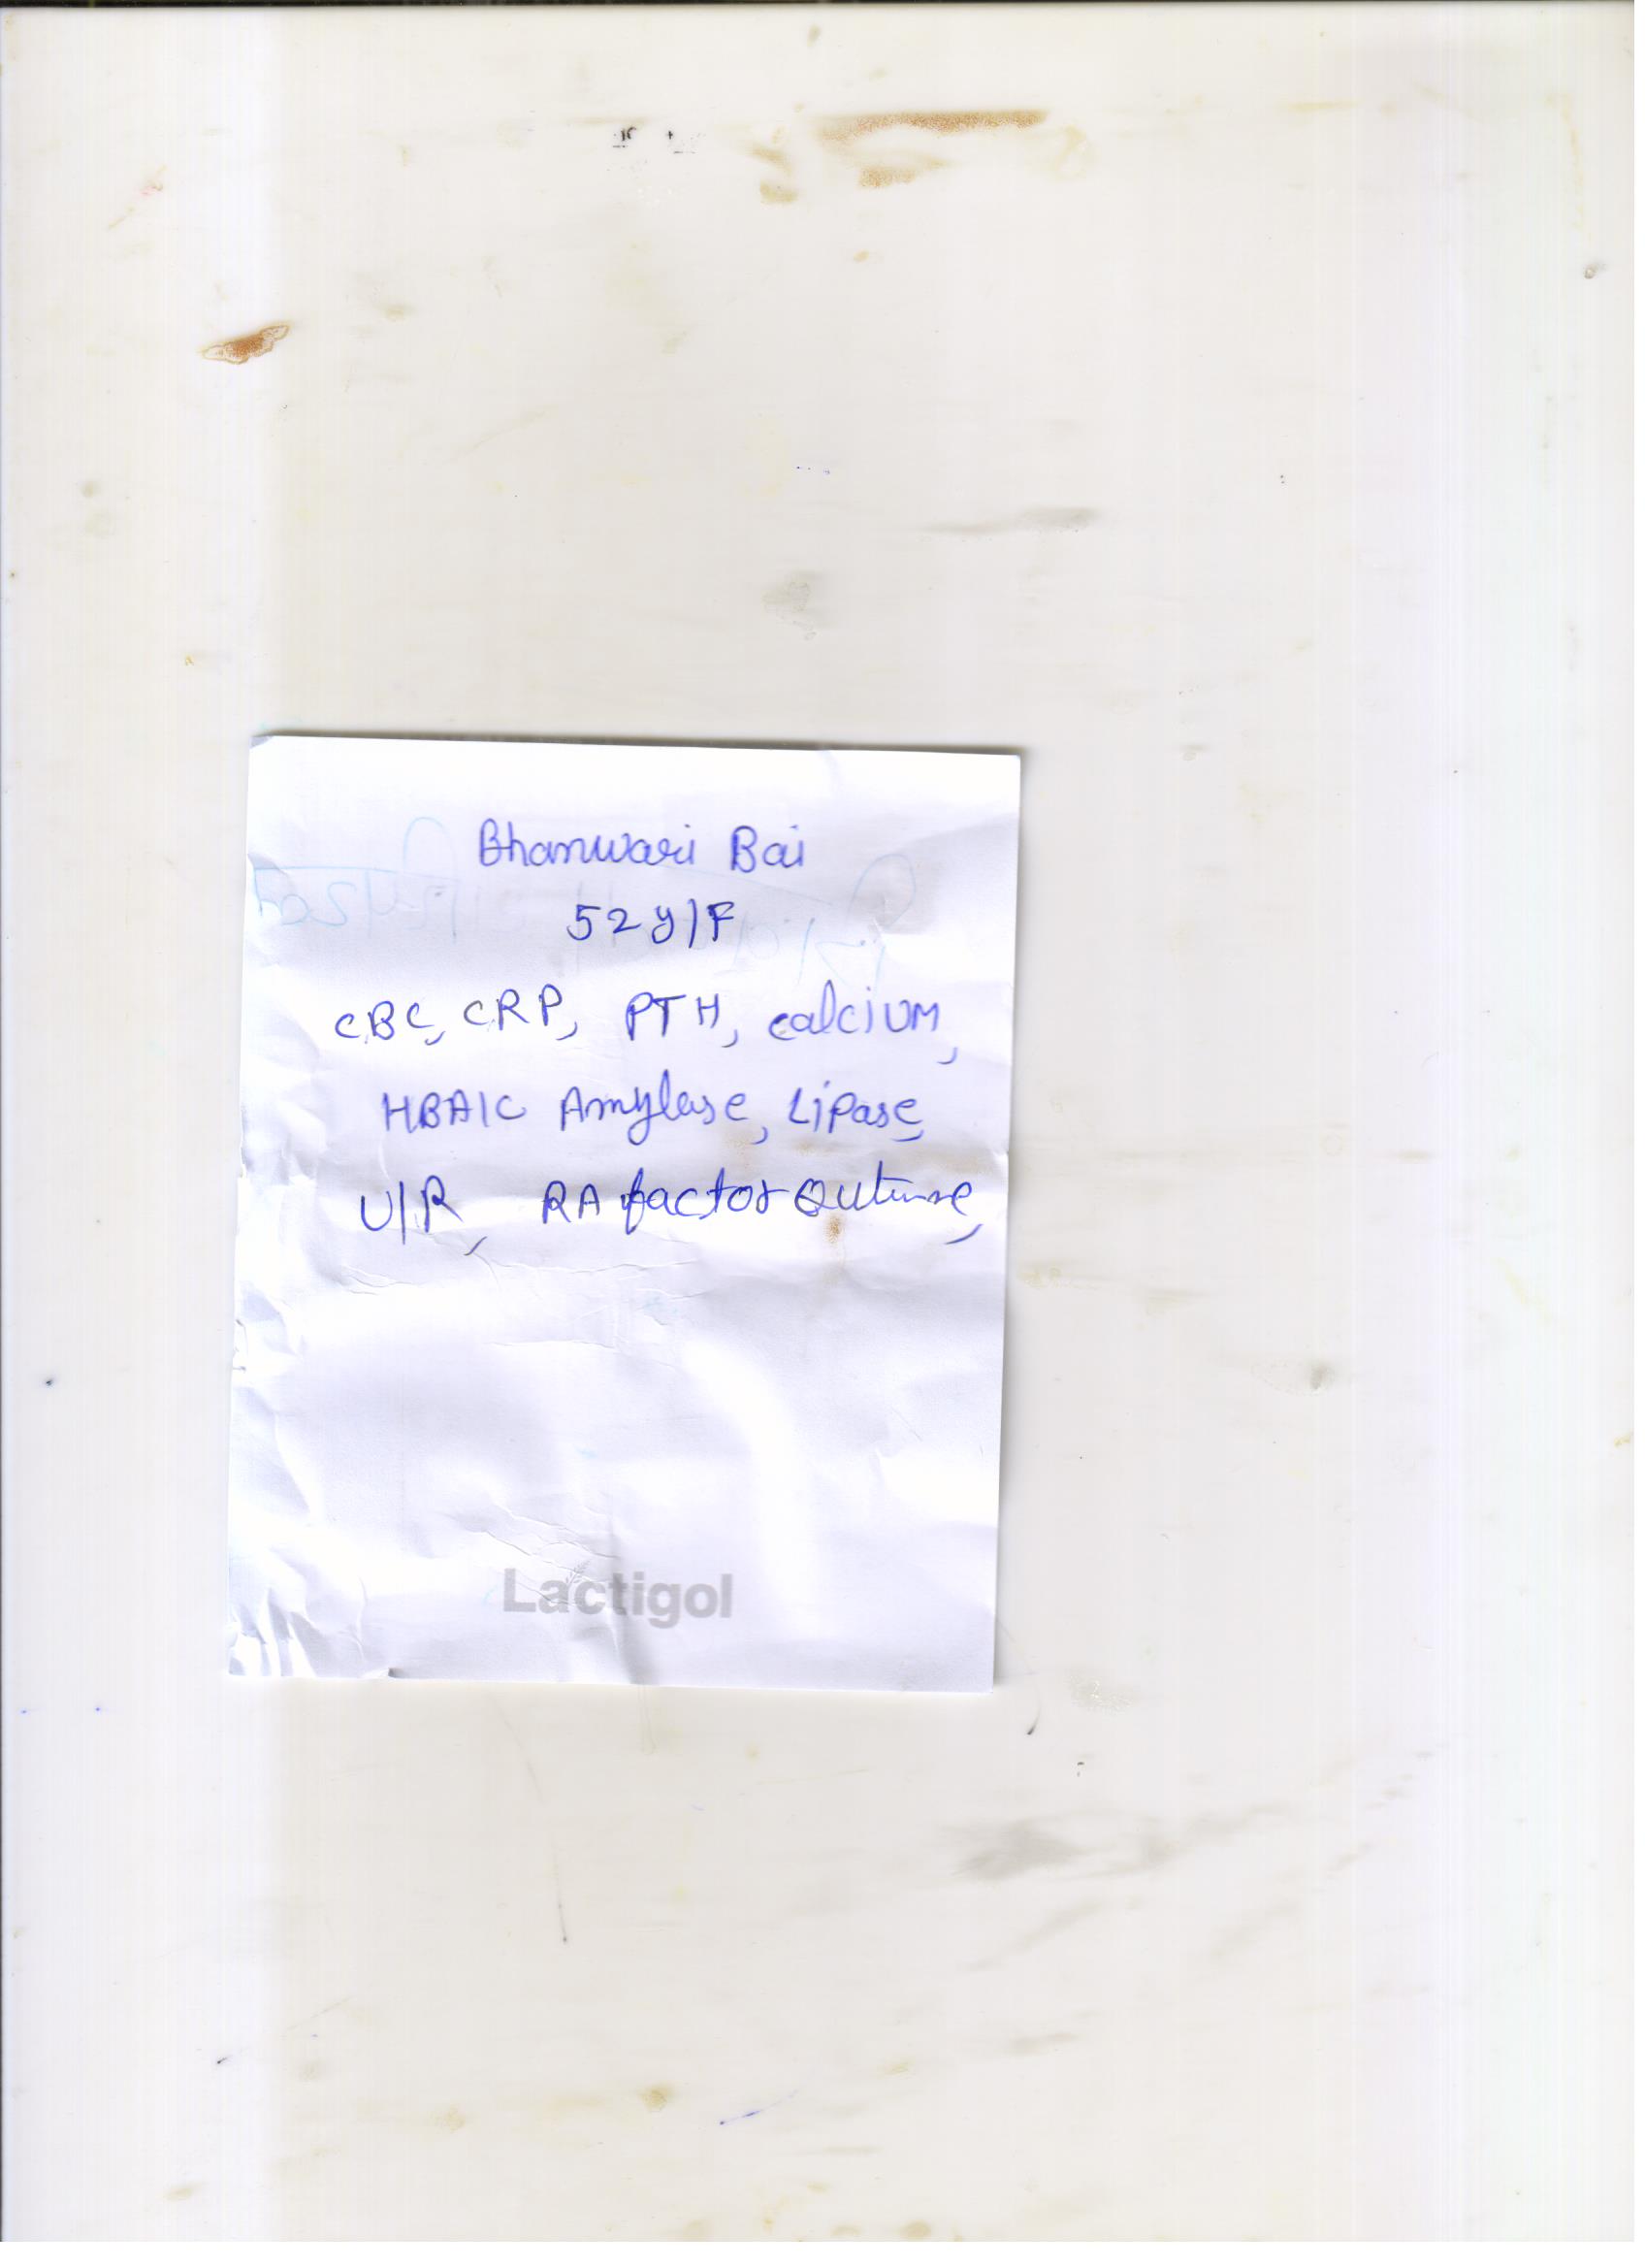 Bhanwari Bai
52 y/F
CBC, CRP, PTH, calcium,
HBA1C Amylase, Lipase,
U/R, RA factor Qutive,
Lactigol